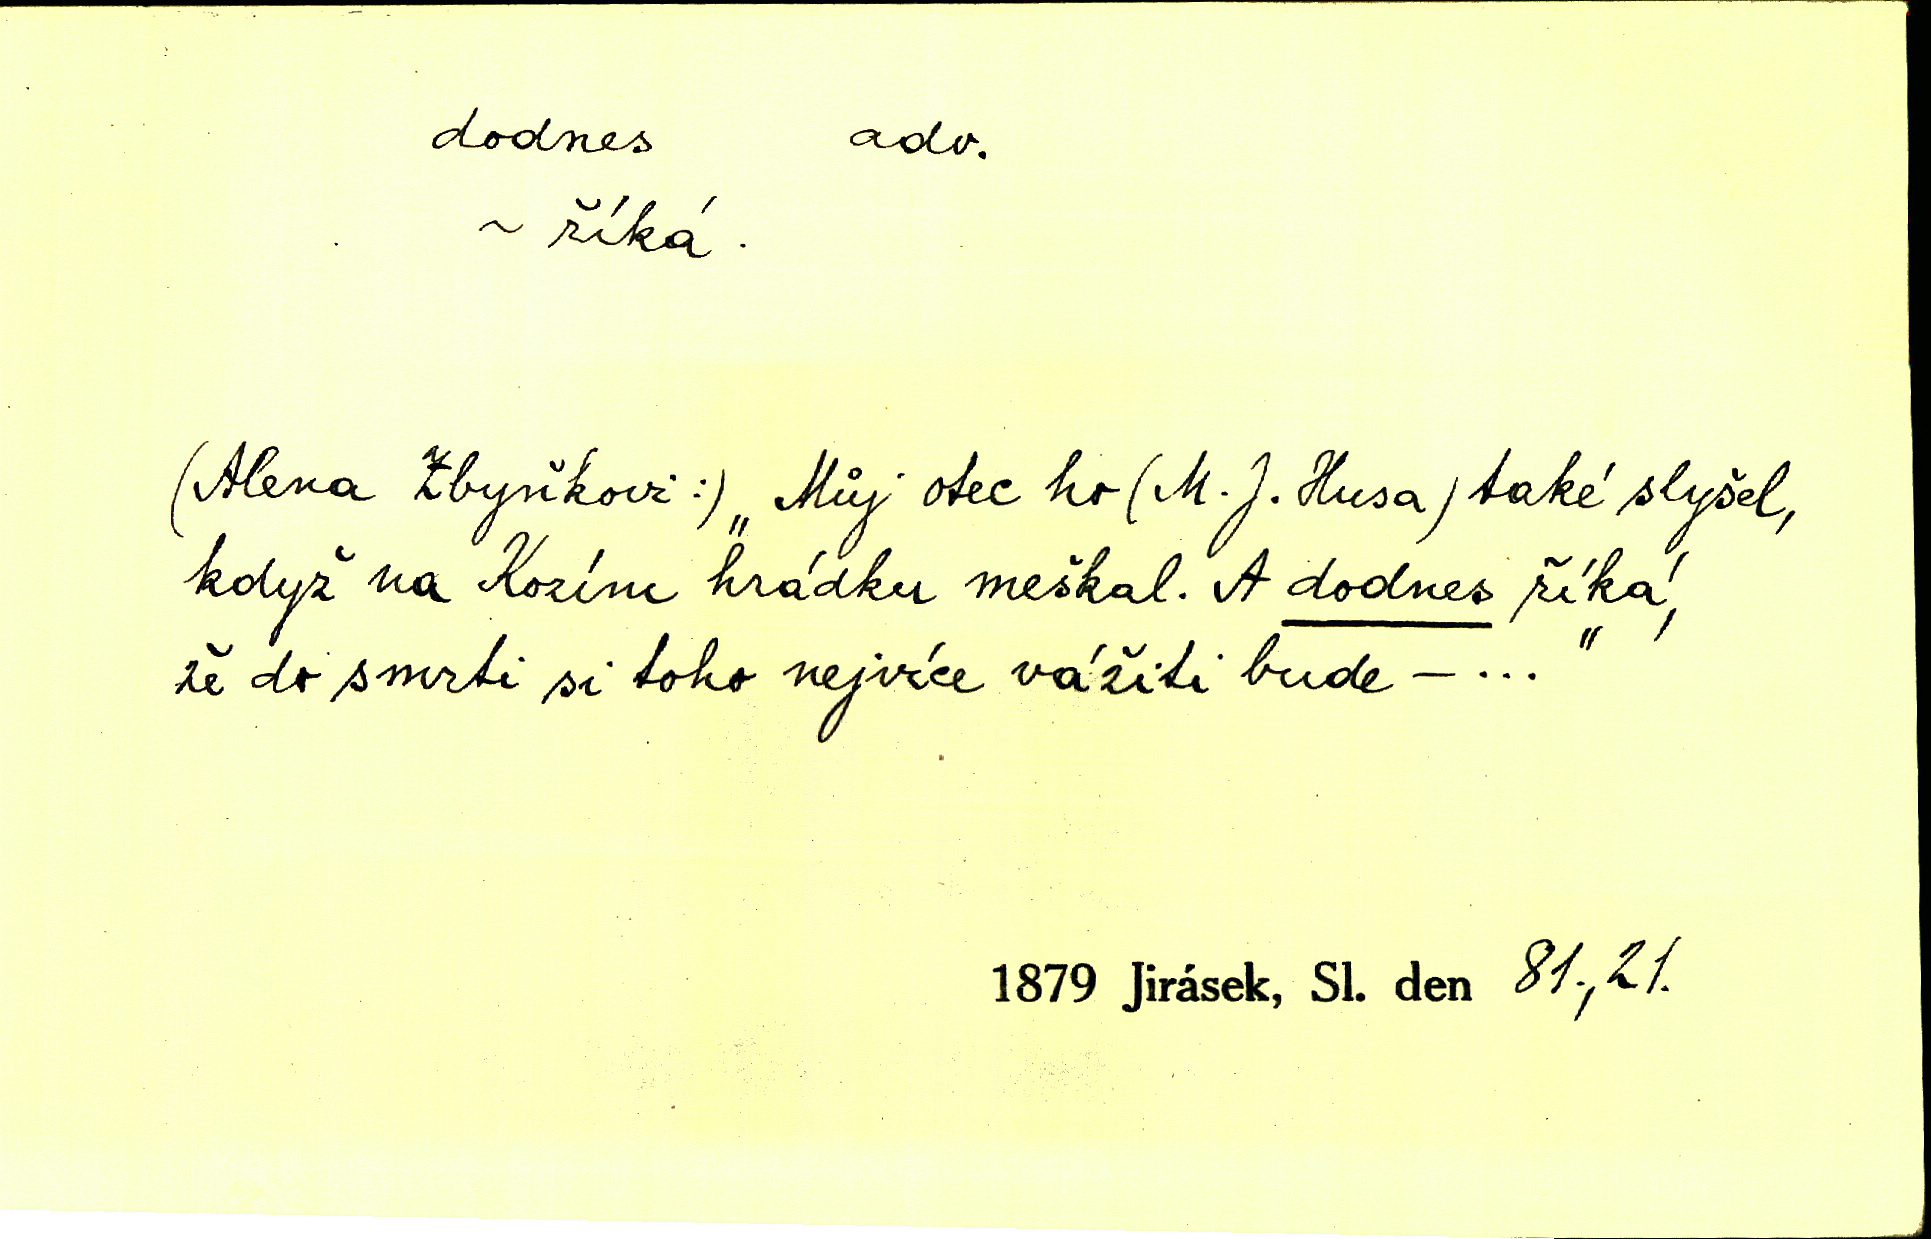 dodnes adv.
~ říká.
(Alena Zbyňkovi:) „Můj otec ho (M. J. Husa) také slyšel,
když na Kozím hrádku meškal. A dodnes říká,
že do smrti si toho nejvíce vážiti bude – ..."
1879 Jirásek, Sl. den 81., 21.